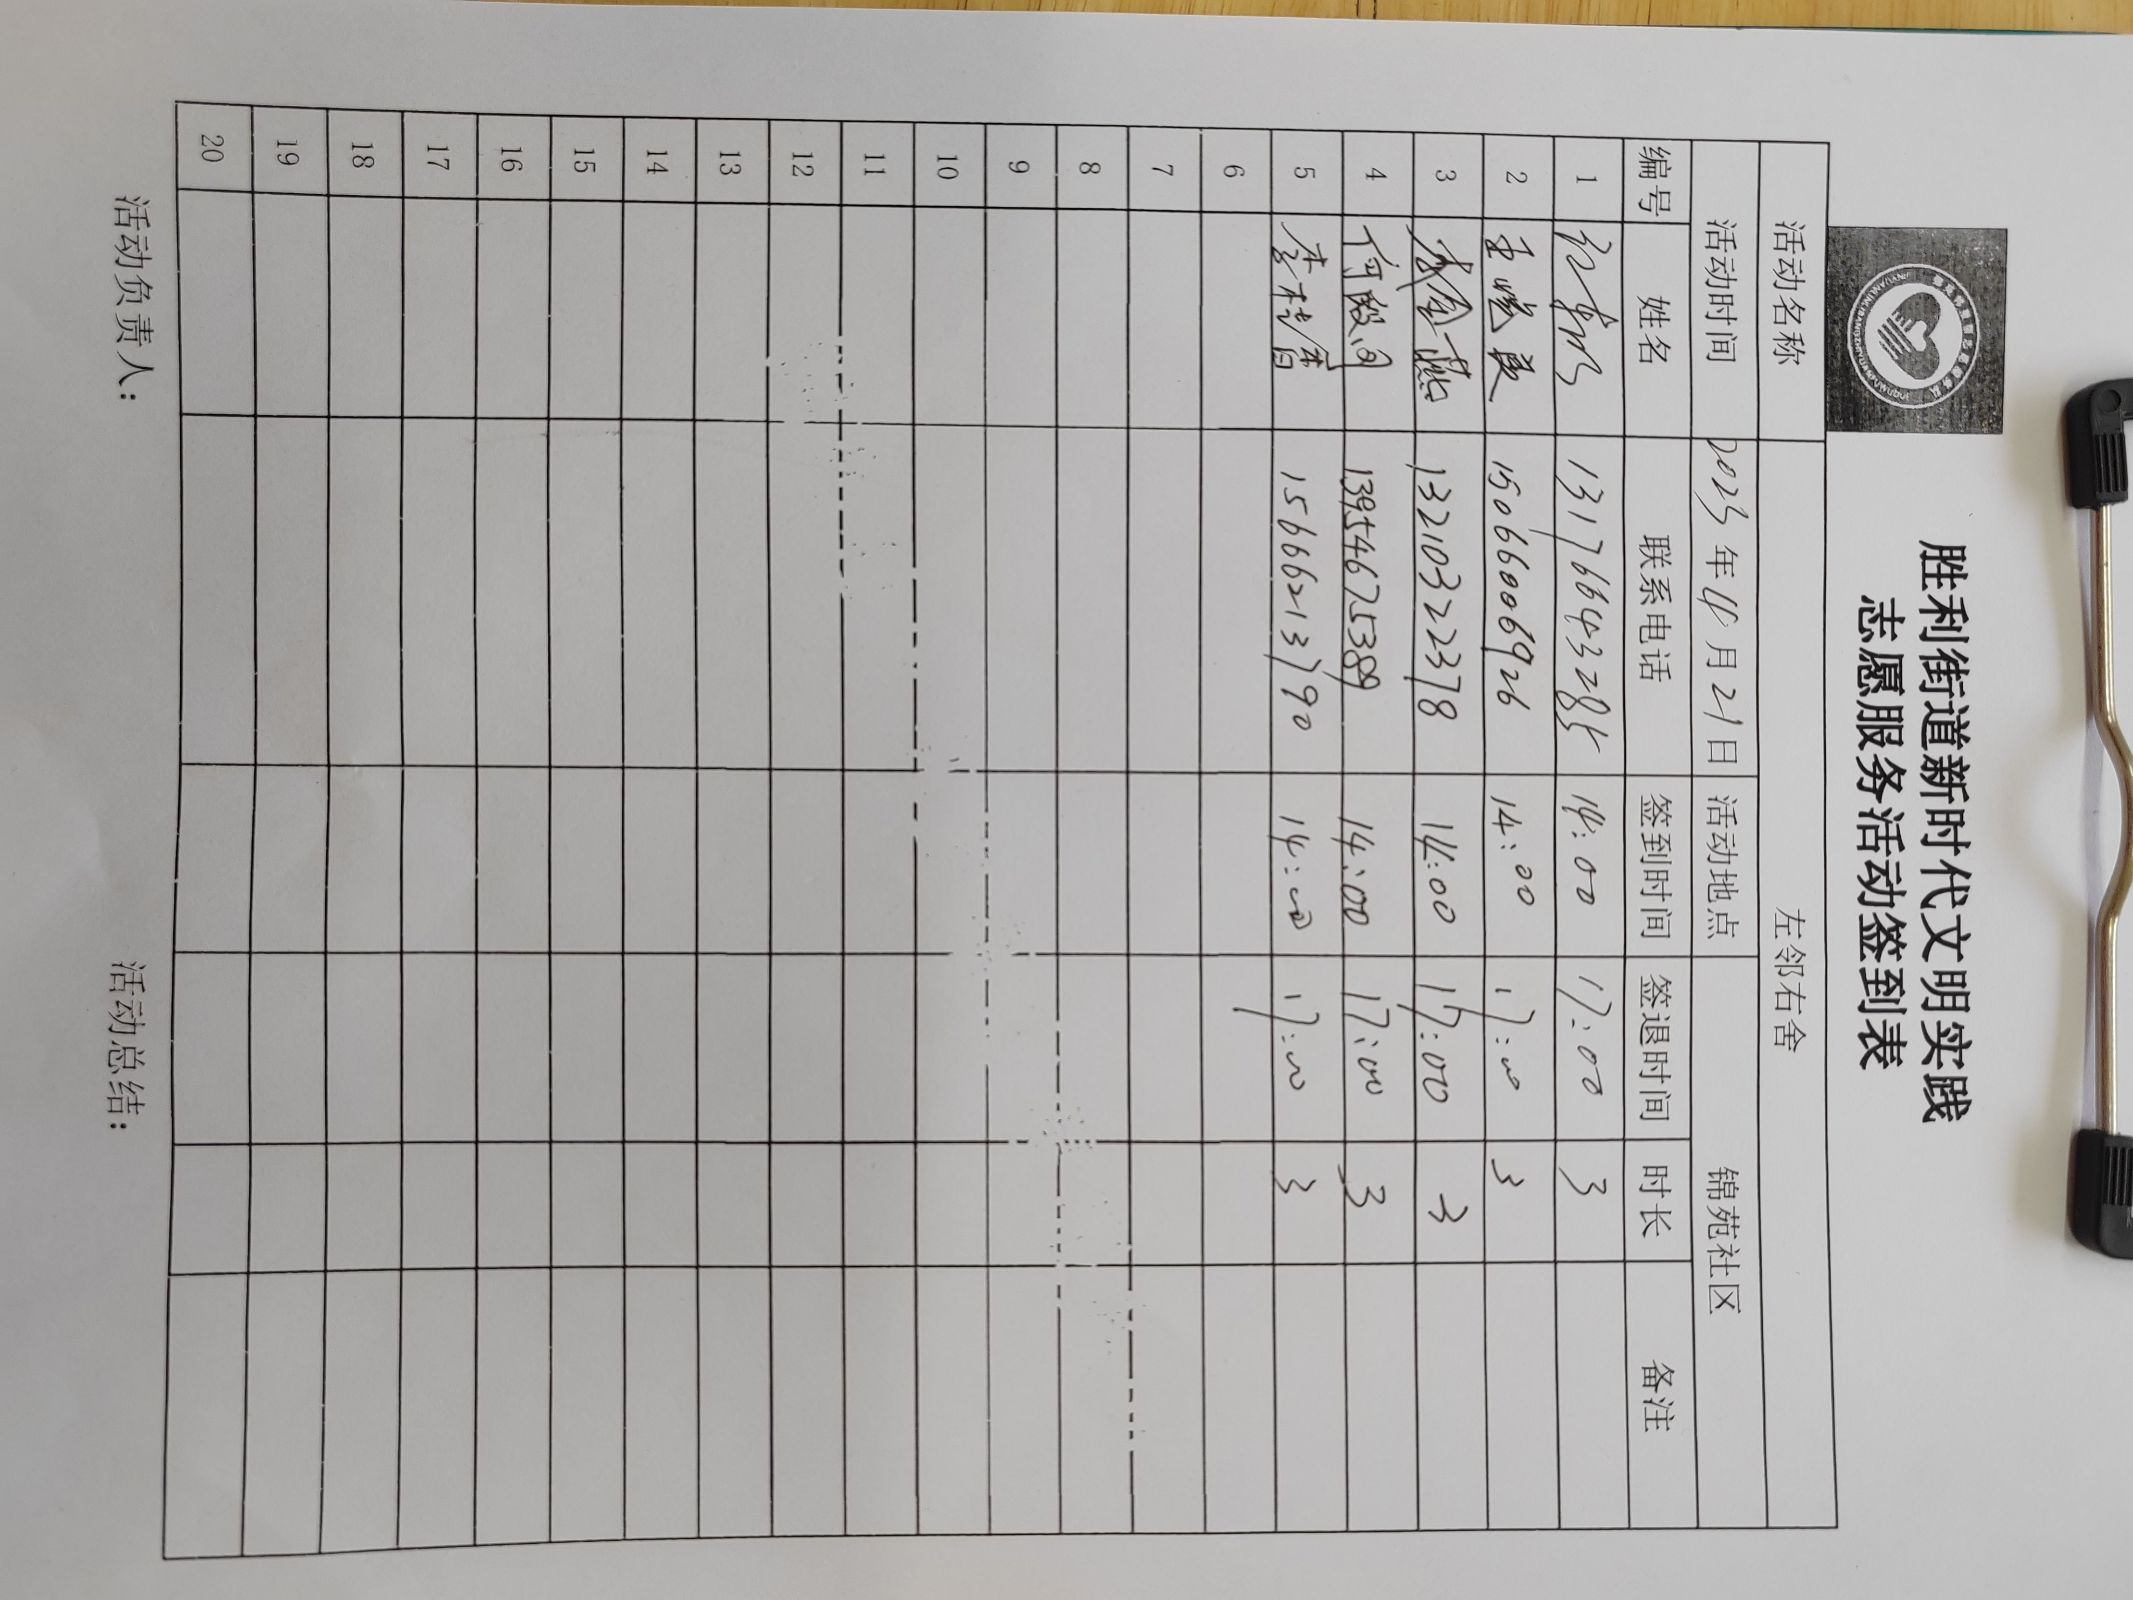 胜利街道新时代文明实践
志愿服务活动签到表
活动名称 左邻右舍
活动时间 2023年4月21日 活动地点 锦苑社区
编号 姓名 联系电话 签到时间 签退时间 时长 备注
1 13176643285 14:00 17:00 3
2 15066006926 14:00 17:00 3
3 13210322378 14:00 17:00 3
4 13954675389 14:00 17:00 3
5 李桂清 15666213790 14:00 17:00 3
6
7
8
9
10
11
12
13
14
15
16
17
18
19
20
活动负责人： 活动总结：